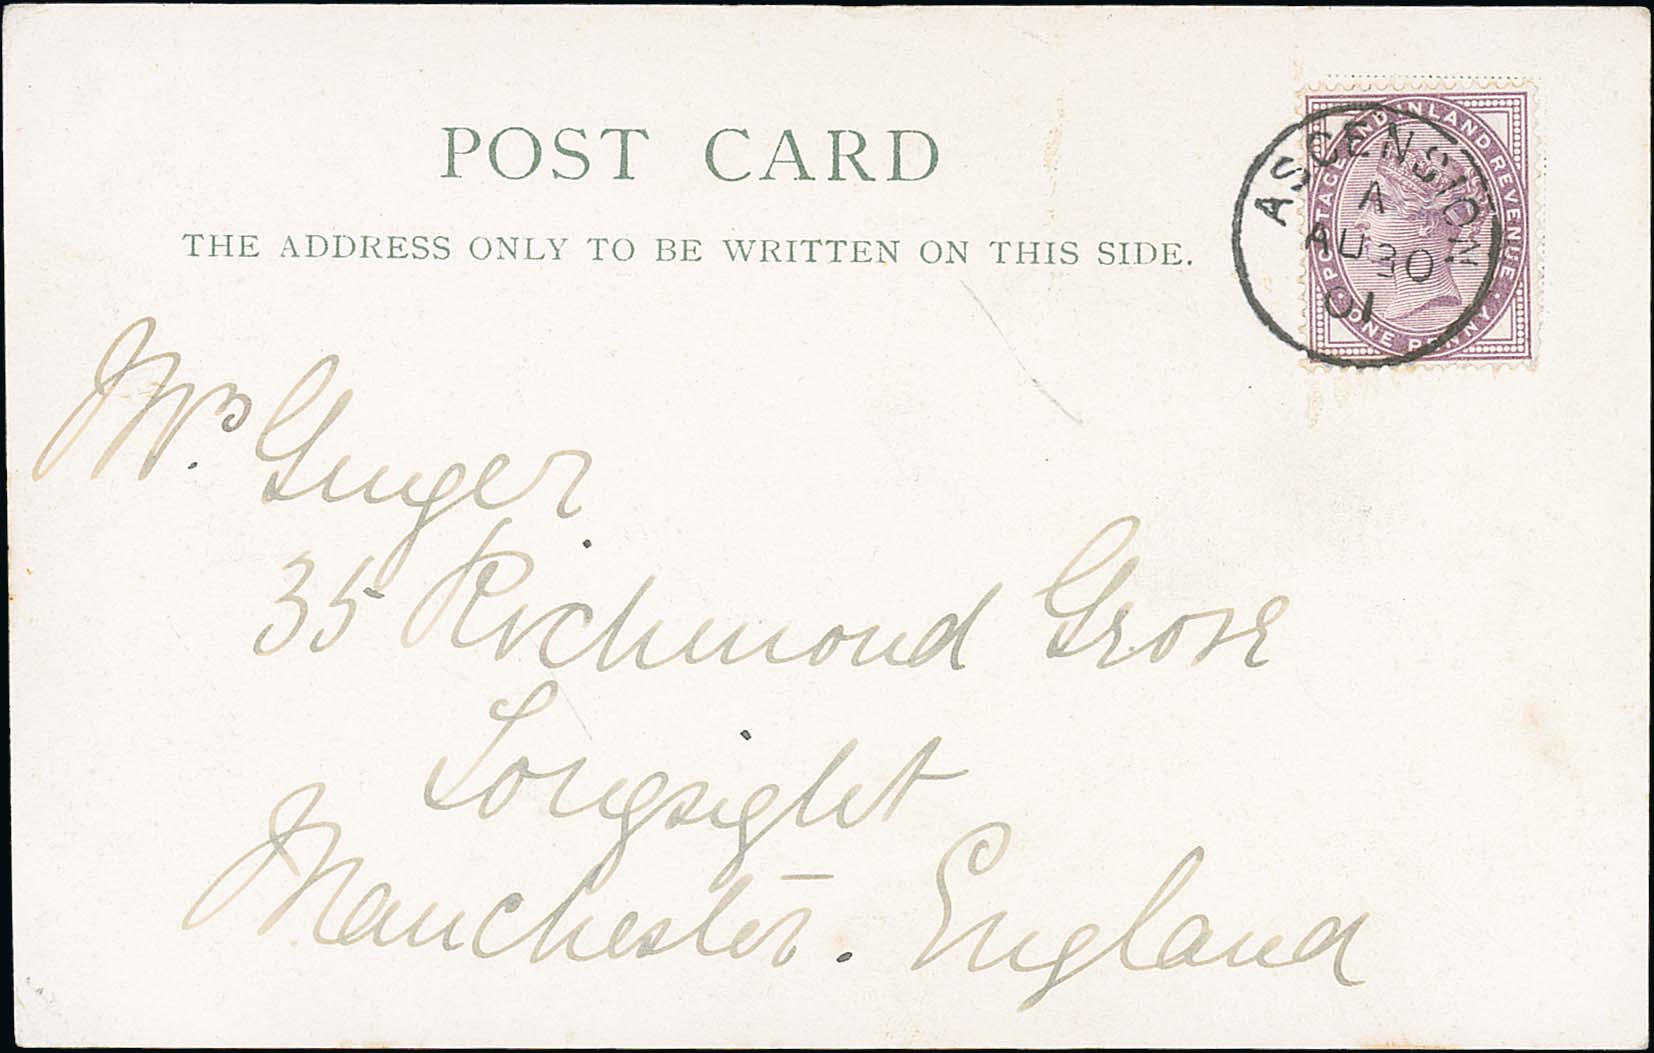 POST CARD
THE ADDRESS ONLY TO BE WRITTEN ON THIS SIDE.
POSTAGE AND INLAND REVENUE
ONE PENNY
ASCENSION
A
AU 30
01
Mrs. Ginger
35 Richmond Grove
Longsight
Manchester. England